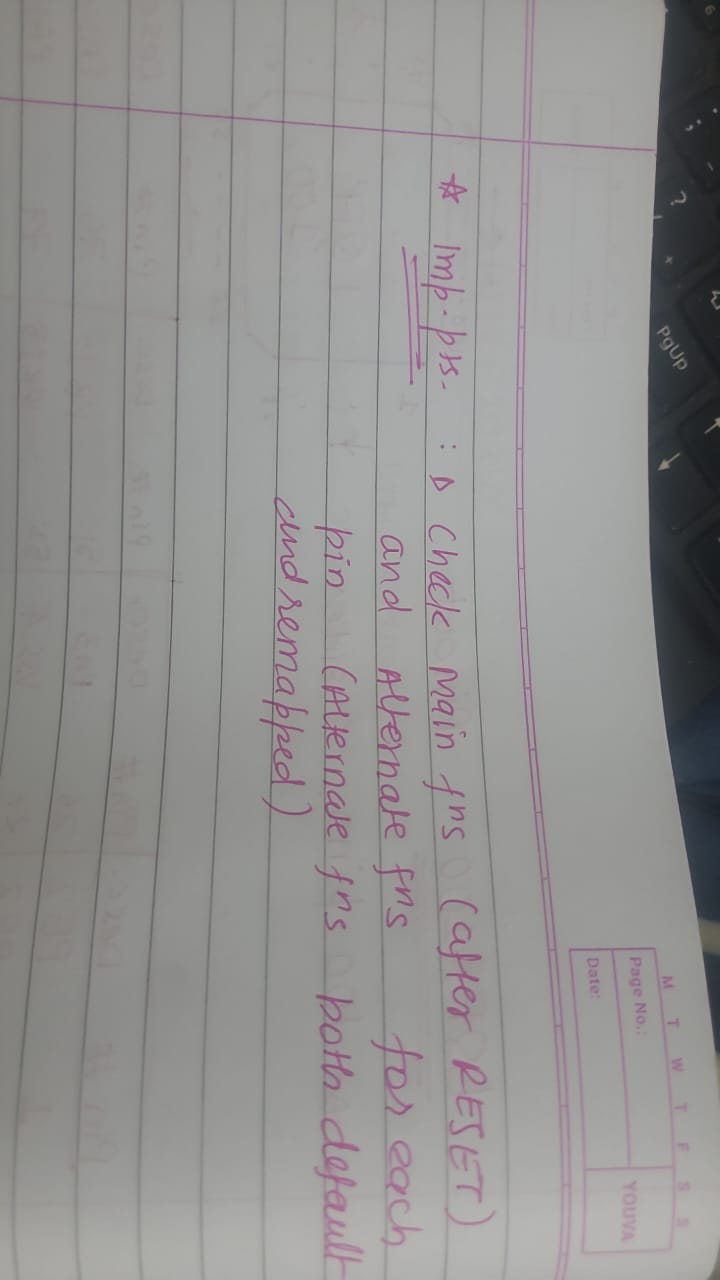 M T W T F S S
Page No.:
Date:
YOUVA
☆ Imp. pts. : → Check Main fns (after RESET)
and Alternate fns for each
pin (Alternate fns both default
and remapped)
?
PgUp